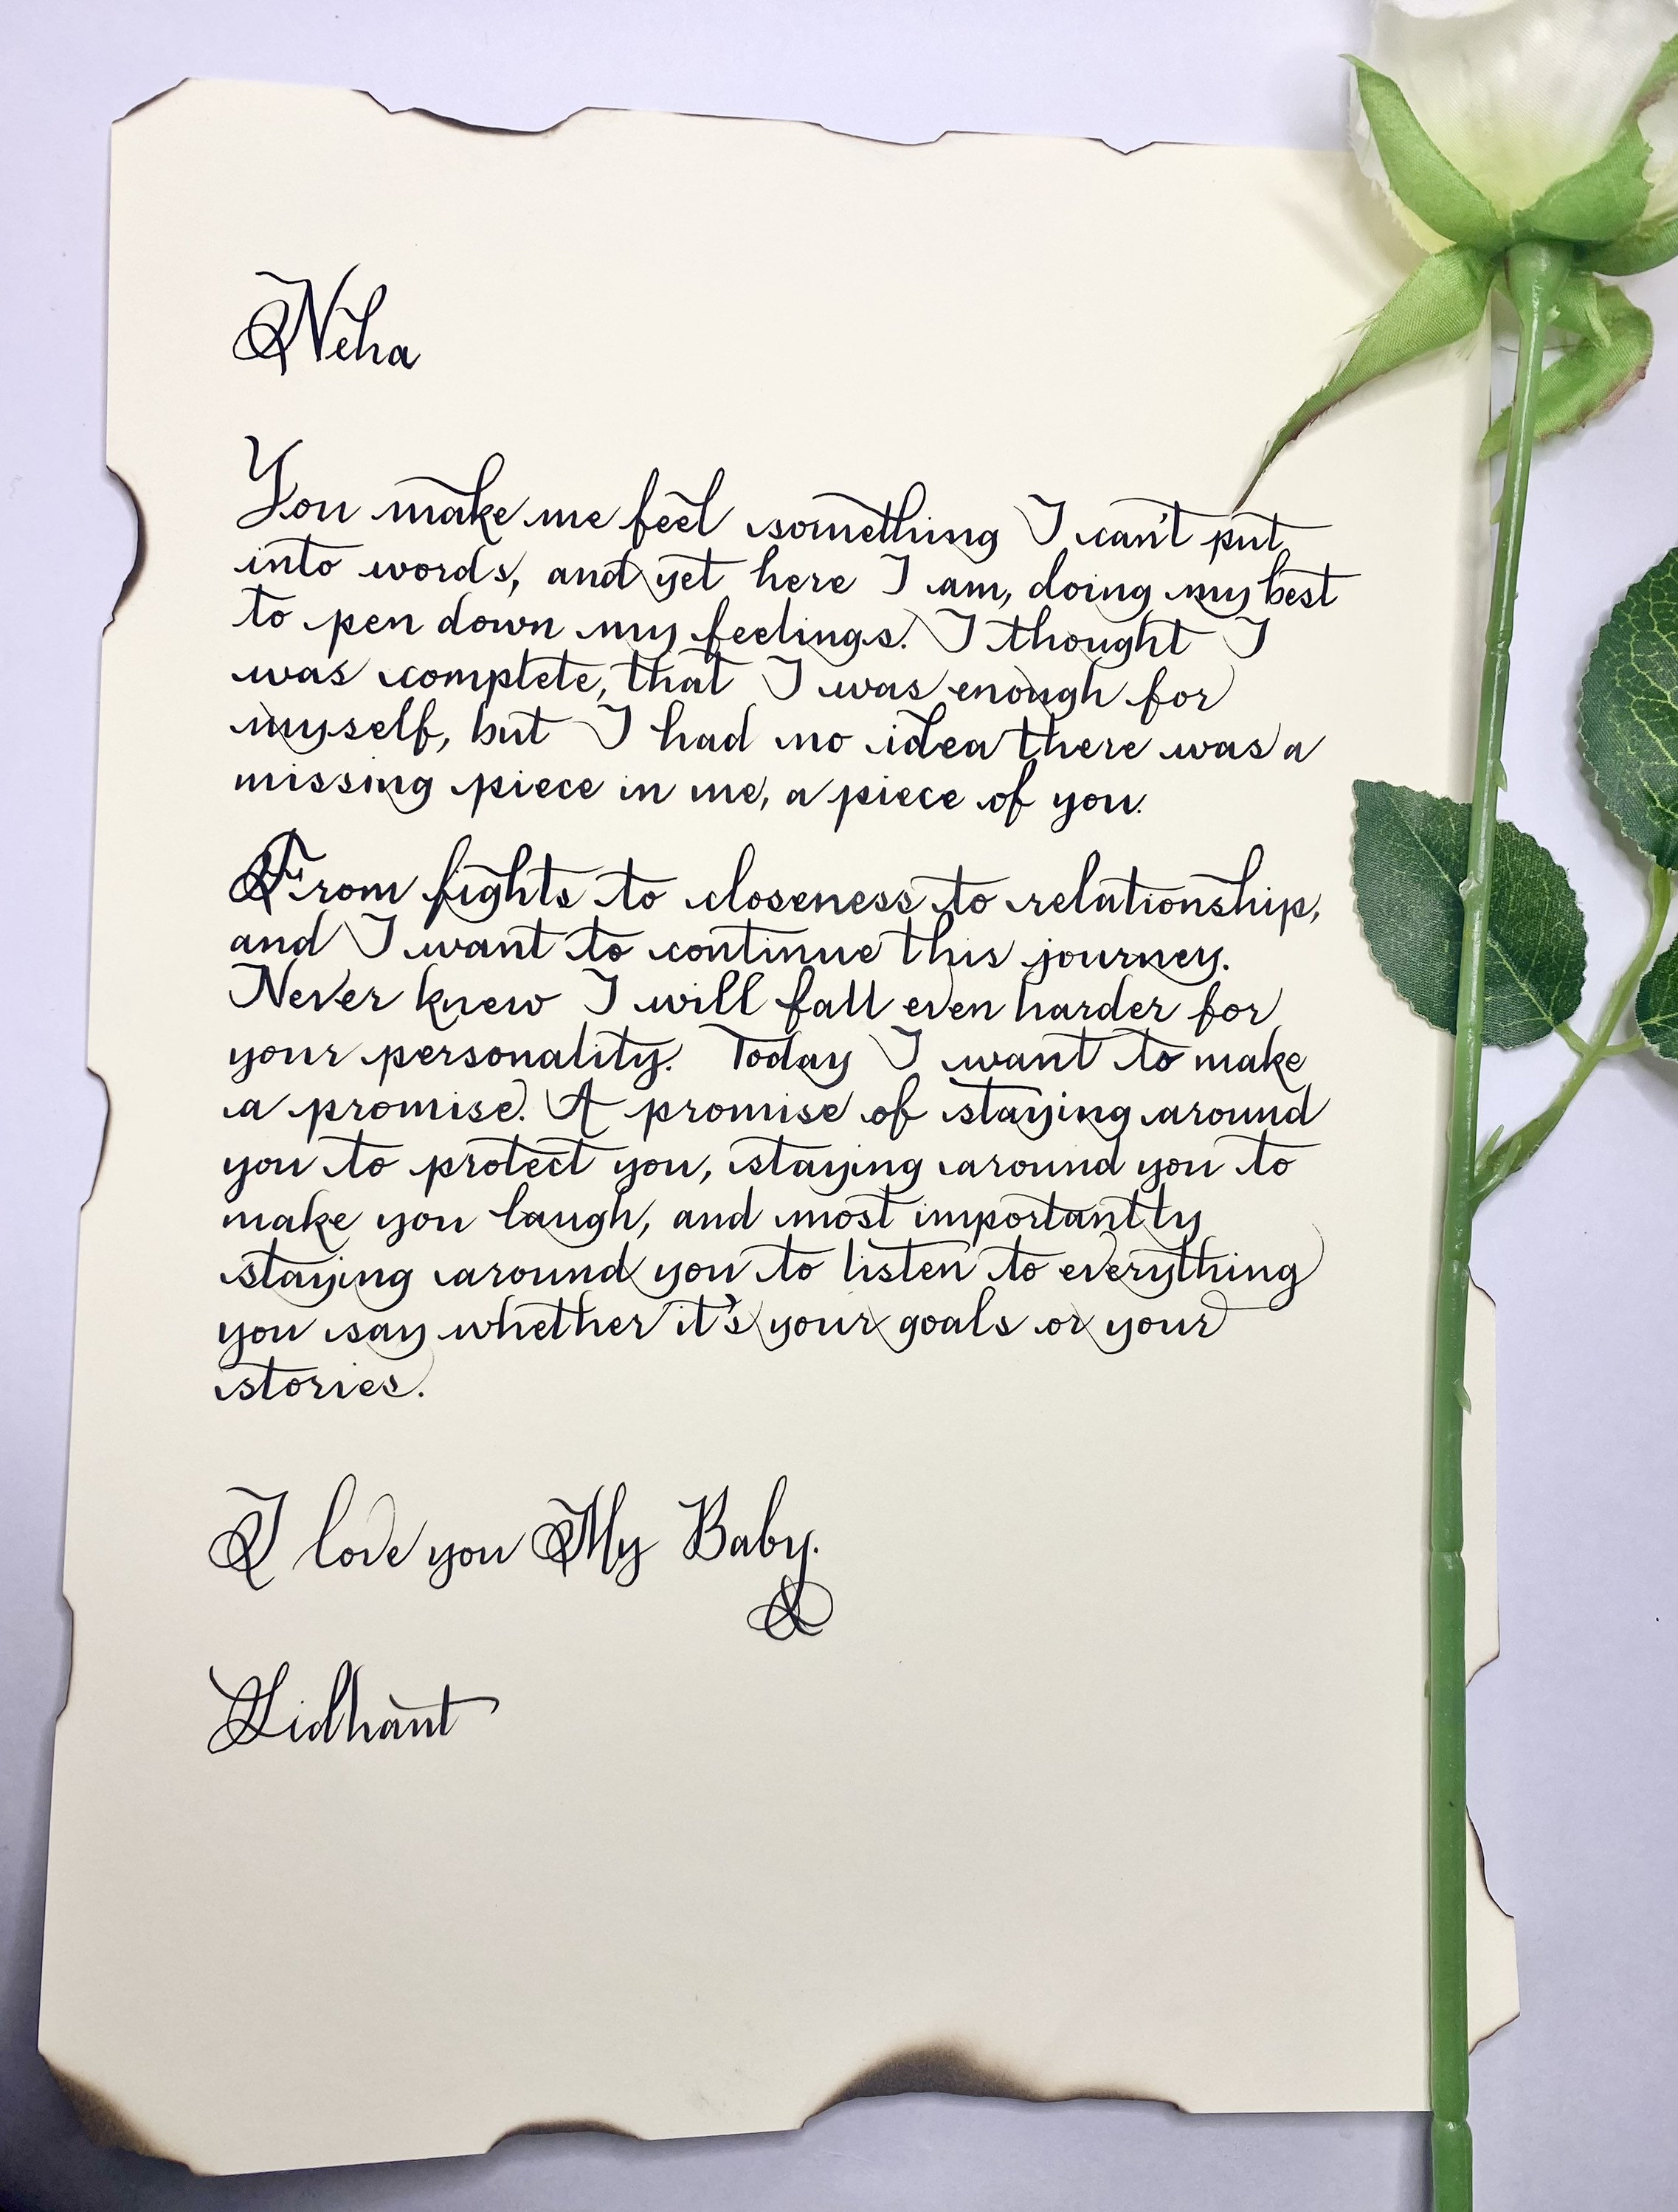 Neha
You make me feel something I can't put
into words, and yet here I am, doing my best
to pen down my feelings. I thought I
was complete, that I was enough for
myself, but I had no idea there was a
missing piece in me, a piece of you.
From fights to closeness to relationship,
and I want to continue this journey.
Never knew I will fall even harder for
your personality. Today I want to make
a promise. A promise of staying around
you to protect you, staying around you to
make you laugh, and most importantly
staying around you to listen to everything
you say whether it's your goals or your
stories.
I love you My Baby.
Sidhant